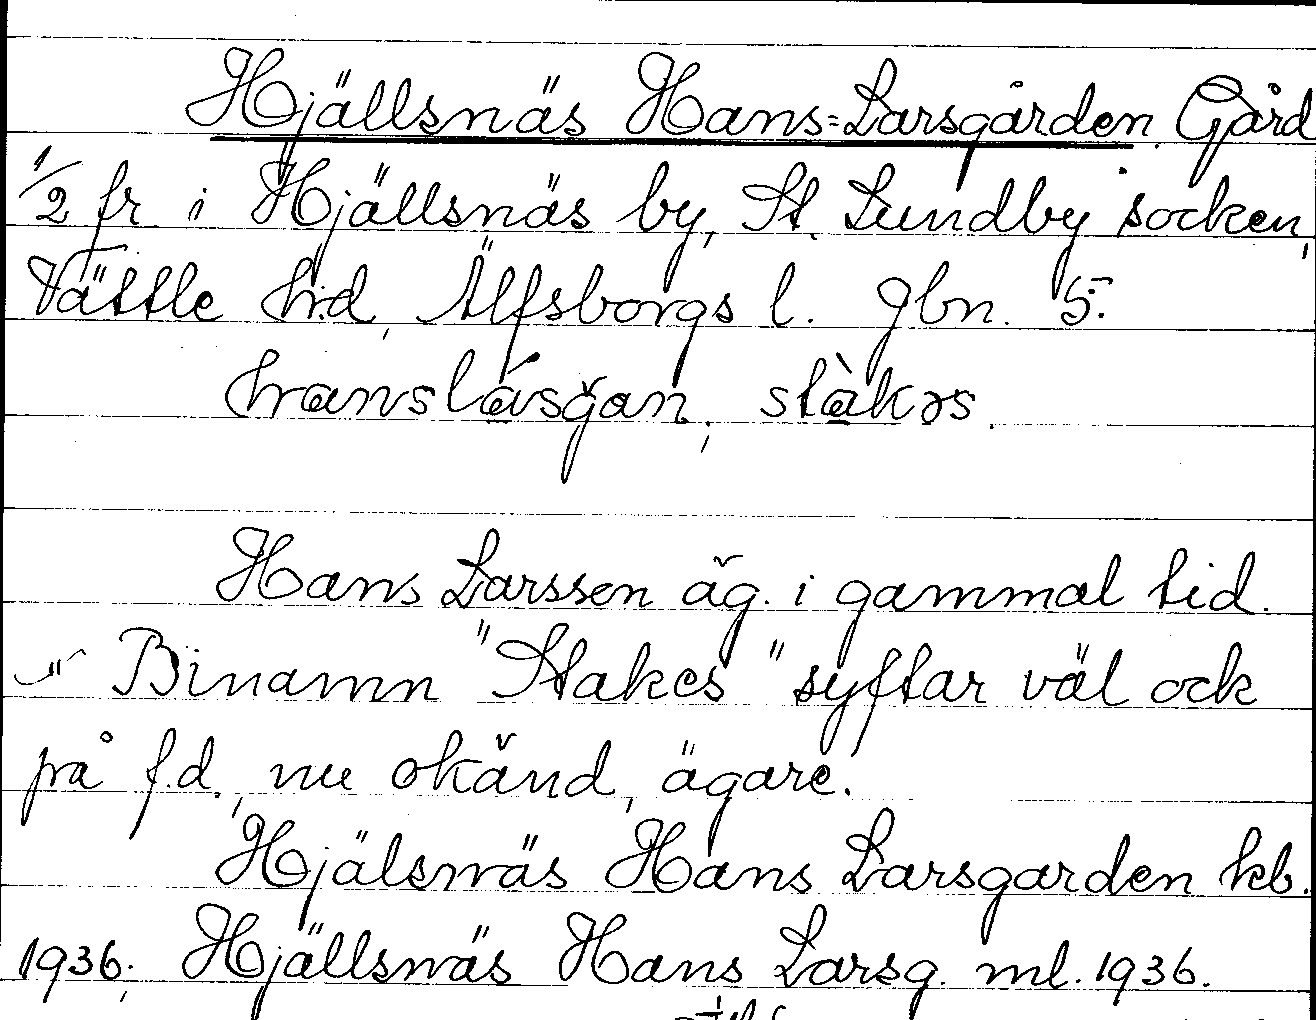 Hjällsnäs Hans=Larsgården. Gård
1/2 fr i Hjällsnäs by, St. Lundby socken,
Vättle hd, Älfsborgs l. gbn. 5.
hranslásğan, stàkəs.
Hans Larsson äg. i gammal tid.
Binamn "Stakes" syftar väl ock
på f.d., nu okänd, ägare.
Hjälsnäs Hans Larsgarden kb.
1936. Hjällsnäs Hans Larsg. ml. 1936.